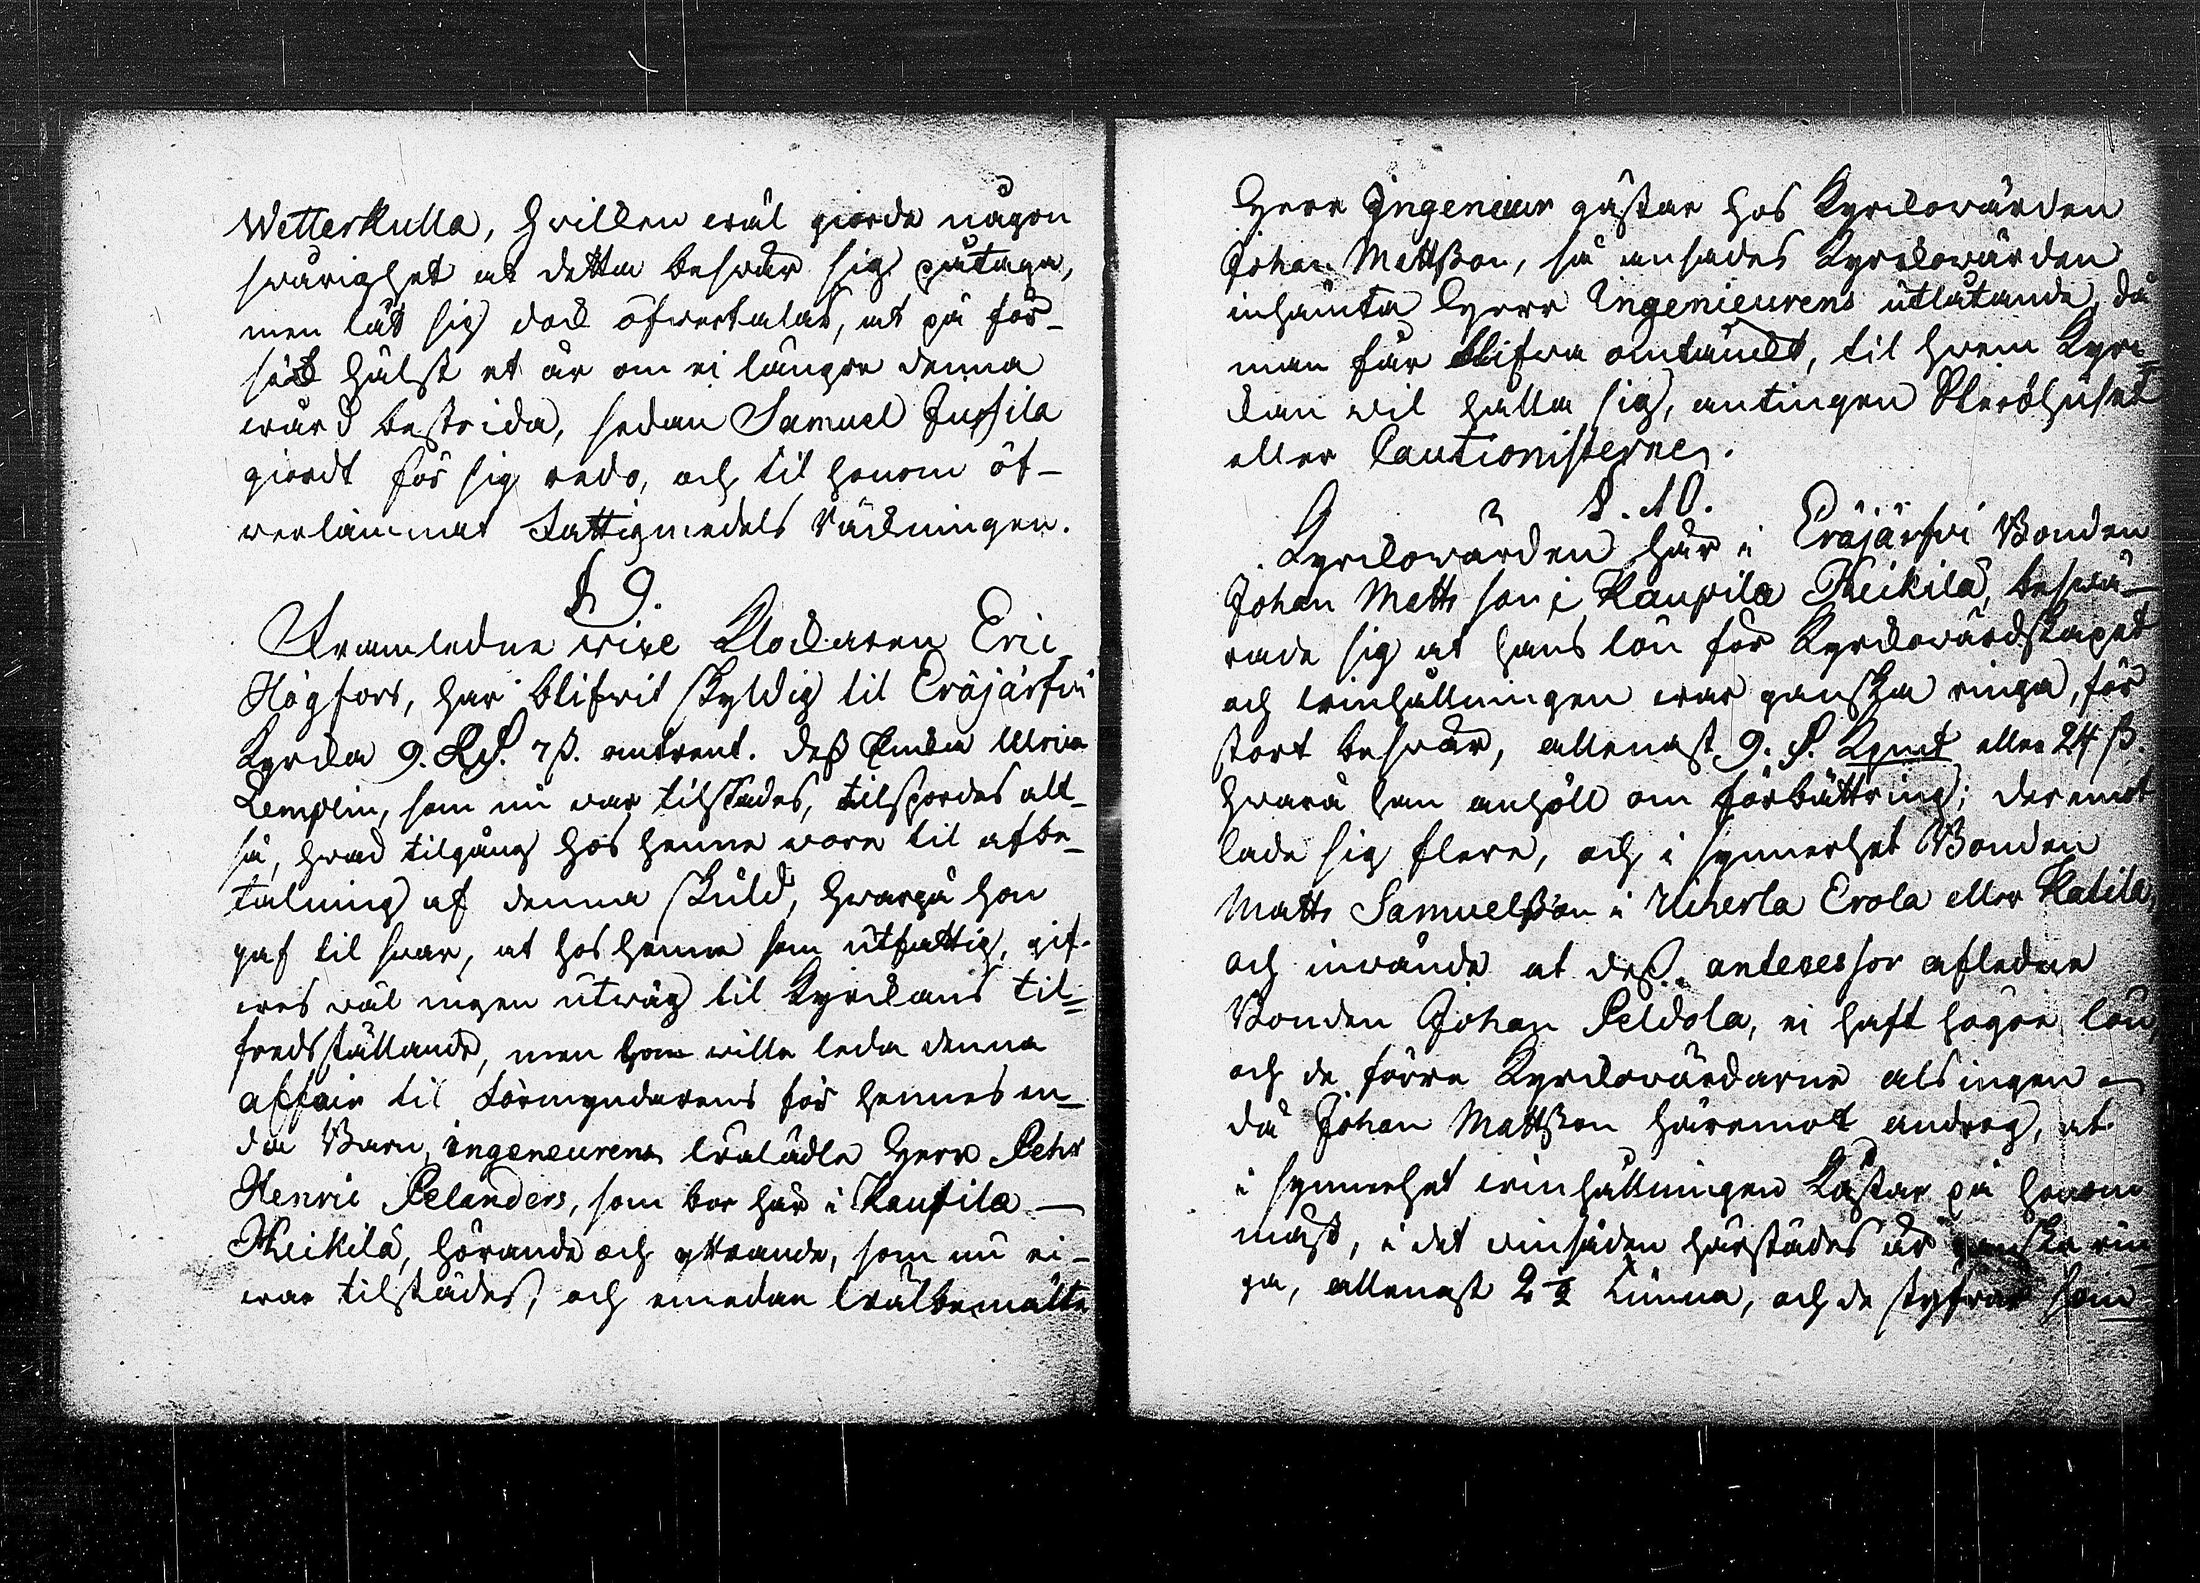 Wetterkulla, hwilken wäl giorde någon
swårighet at detta beswär sig påtaga,
men lät sig dock öfwertalas, at på för-
sök hälst et år om ei längre denna
wård bestrida, sedan Samuel Jussila
giordt för sig redo, och til honom öf-
werlämnat Fattigmedels Räckningen.
§ 9.
Framledne vice Klockaren Eric
Högfors, har blifwit skyldig til Eräjärfwi
Kyrka 9. Rd. 7 ß. omtrent. Deß Enka Ulrica
Templin, som nu war tilstädes, tilspordes allt-
så, hwad tilgång hos henne wore til afbe-
talning af denna skuld, hwarpå hon
gaf til swar, at hos henne som utfattig, gif-
wes wäl ingen utwäg til Kyrckans til-
fredsställande, men hon wille leda denna
affair til Förmyndarens för hennes en-
da Barn, ingeneurens Wälädle Herr Pehr
Henric Pelanders, som bor här i Kaupila
Heikilä, hörande och yttrande, som nu ei
war tilstädes, och emedan Wälbemälte
Herr Ingenieur gästar hos Kyrckowärden
Johan Mattßon, så ansades Kyrckowärden
inhämta Herr Ingenieurens utlåtande, då
man får blifwa omtänckt, til hwem Kyrc-
kan wil hålla sig, antingen Sterbhuset
eller Cautionisterne.
§. 10.
Kyrckowärden här i Eräjärfwi Bonden
Johan Mattsson i Kaupila Heikilä, beswä-
rade sig at hans lön för Kyrckowärdskapet
och winhållningen war ganska ringa, för
stort beswär, allenast 9. d. Kpmt eller 24 ß.
hwarå han anhöll om förbättring; deremot
lade sig flere, och i synnerhet Bonden
Matts Samuelßon i Uiherla Erola eller Katila,
och inwände at deß antecessor afledne
Bonden Johan Peldola, ei haft högre lön
och de förre Kyrckowärdarne alsingen
då Johan Mattßon häremot androg, at
i synnerhet winhållningen kåstar på honom
mäst, i det winsåden härstädes är ganska rin
ga, allenast 2 ½ kanna, och de styfrar som